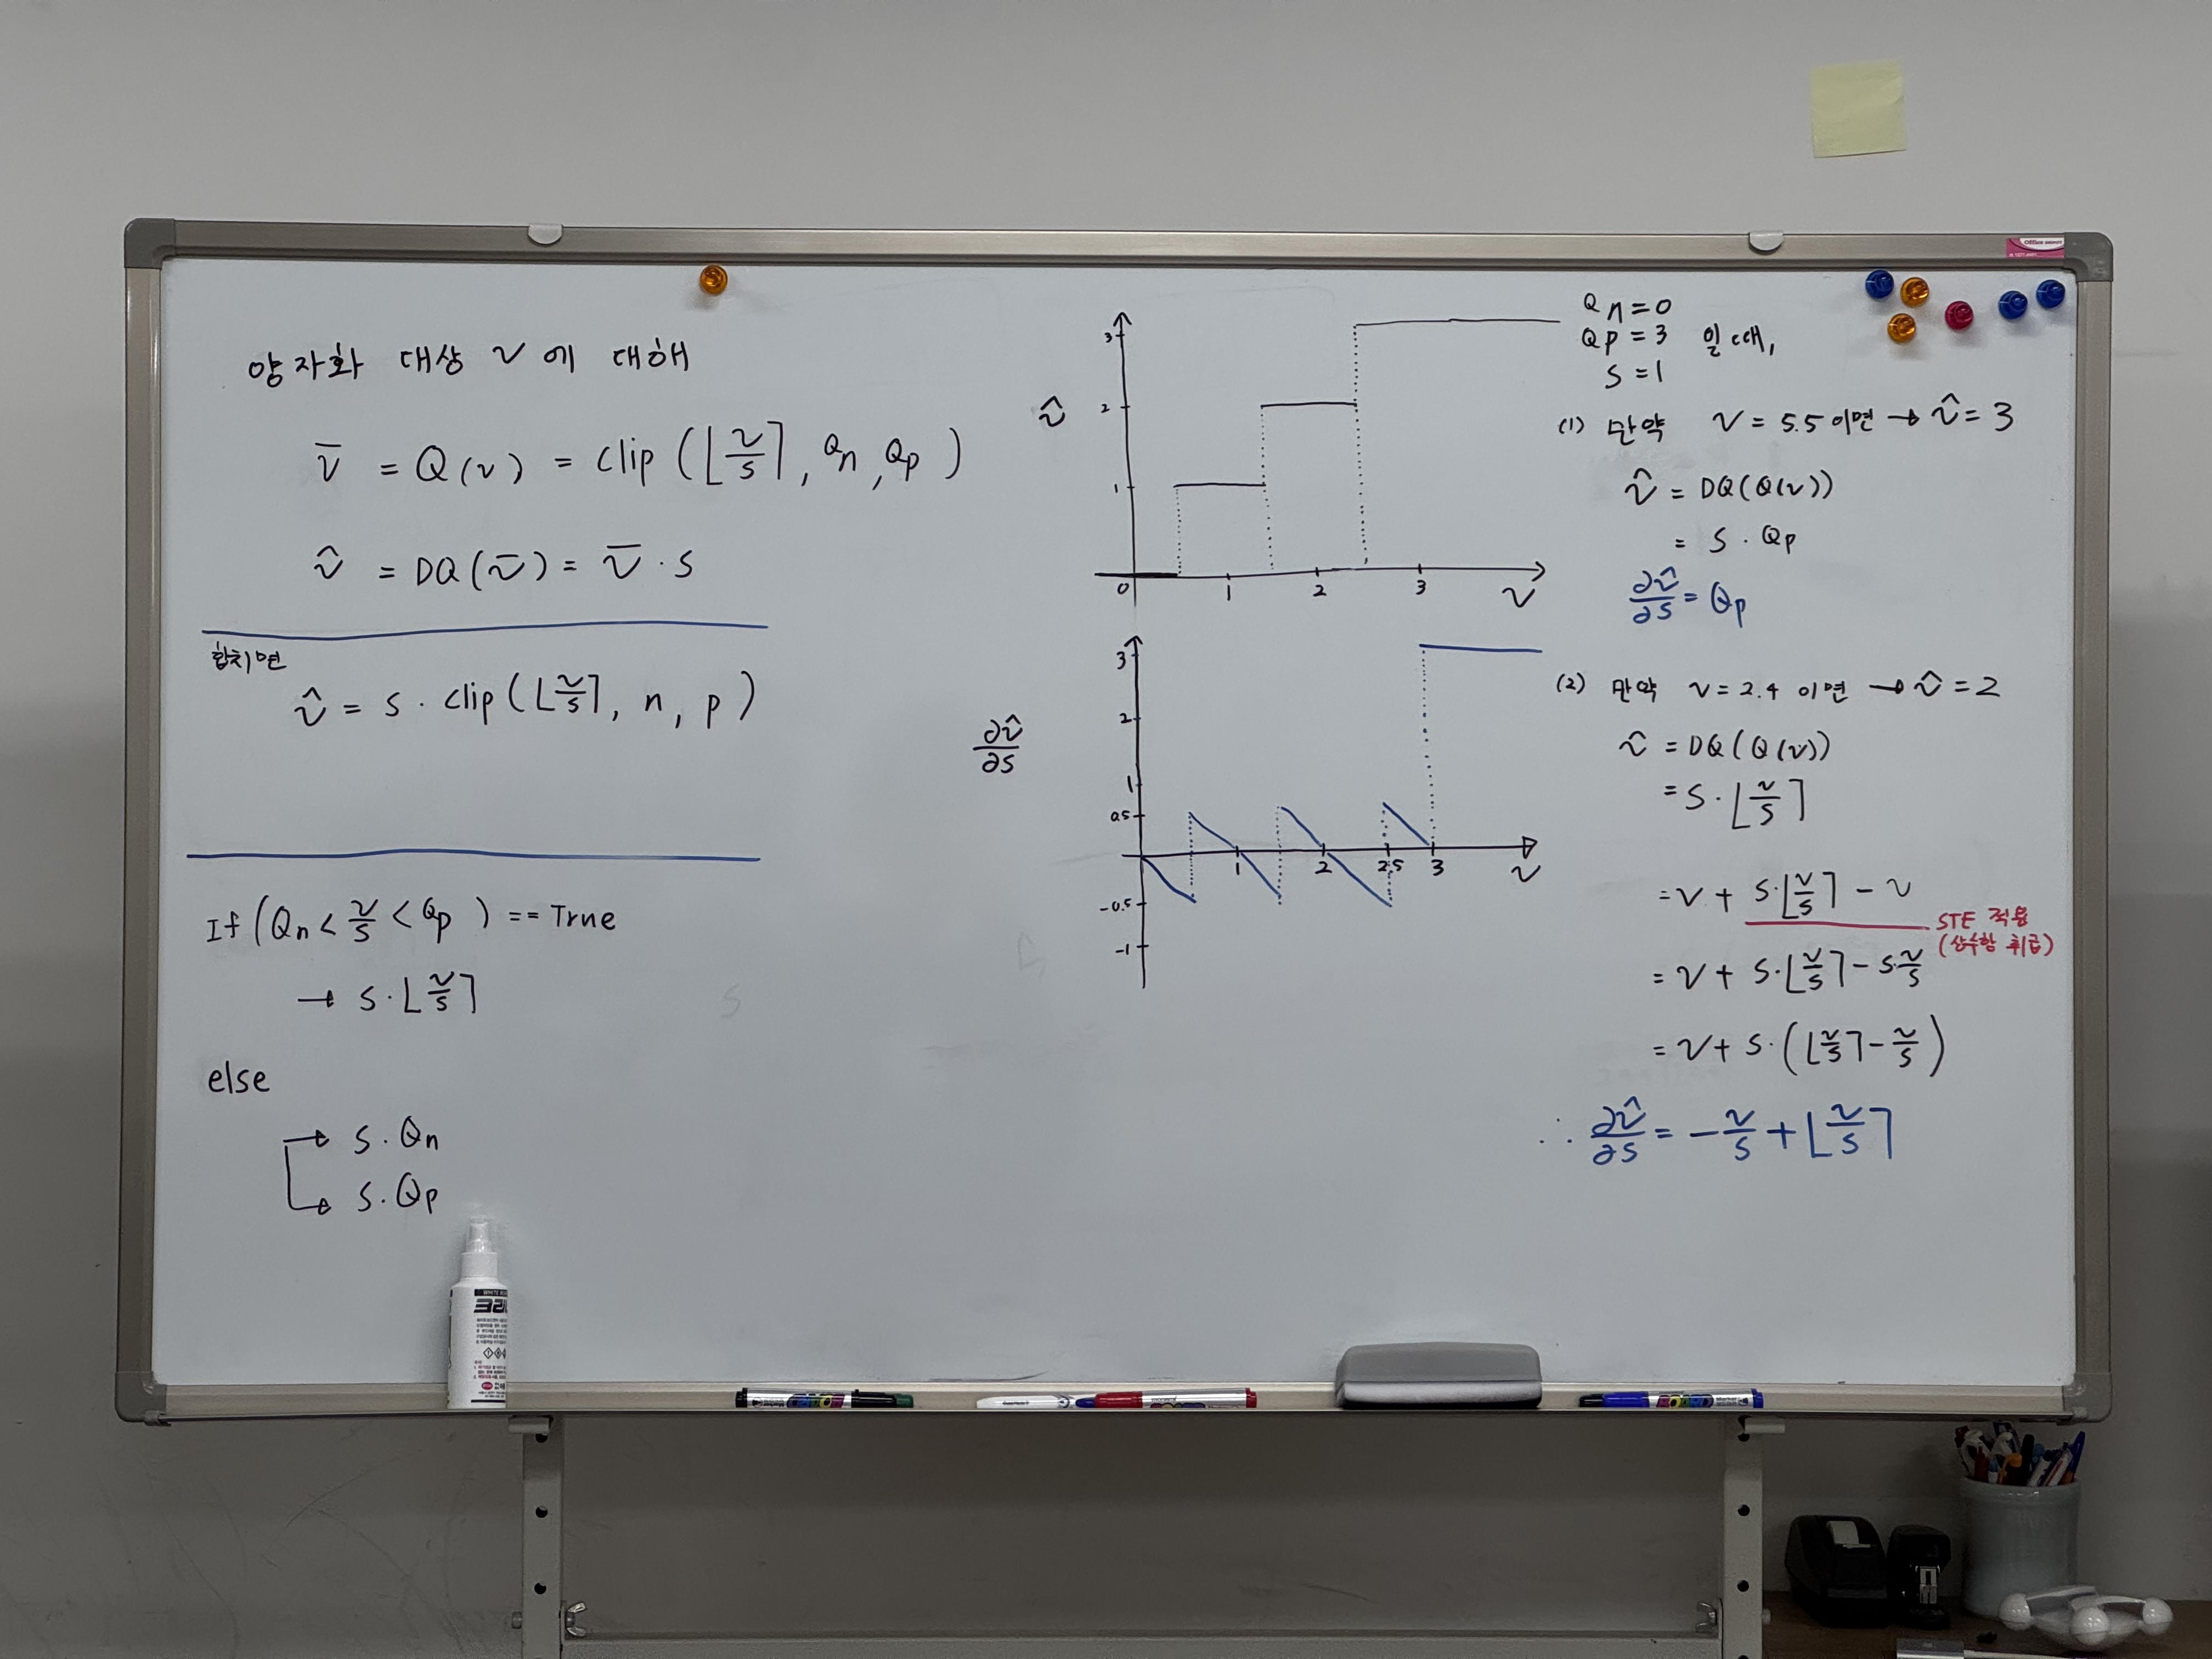 양자화 대상 v 에 대해
v̅ = Q(v) = clip(⌊v/s⌉, Qn, Qp)
v̂ = DQ(v̅) = v̅ · s
합치면
v̂ = s · clip(⌊v/s⌉, n, p)
If (Qn < v/s < Qp) == True
→ s · ⌊v/s⌉
else
→ s · Qn
→ s · Qp
3
v̂ 2
1
0 1 2 3 v
3
2
∂v̂/∂s
1
0.5
1 2 2.5 3 v
-0.5
-1
Qn = 0
Qp = 3 일 때,
s = 1
(1) 만약 v = 5.5 이면 → v̂ = 3
v̂ = DQ(Q(v))
= s · Qp
∂v̂/∂s = Qp
(2) 만약 v = 2.4 이면 → v̂ = 2
v̂ = DQ(Q(v))
= s · ⌊v/s⌉
= v + s·⌊v/s⌉ - v
STE 적용
(상수항 취급)
= v + s·⌊v/s⌉ - s·v/s
= v + s·(⌊v/s⌉ - v/s)
∴ ∂v̂/∂s = -v/s + ⌊v/s⌉